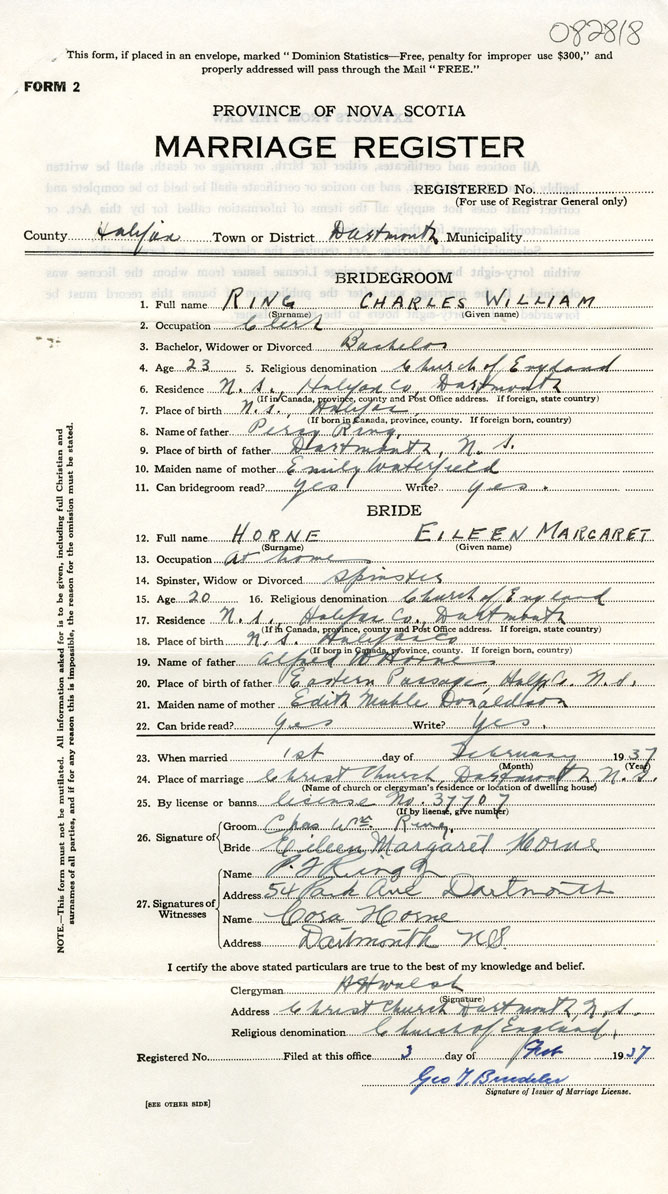 082818
This form, if placed in an envelope, marked "Dominion Statistics—Free, penalty for improper use $300," and
properly addressed will pass through the Mail "FREE."
FORM 2
PROVINCE OF NOVA SCOTIA
MARRIAGE REGISTER
REGISTERED No.
(For use of Registrar General only)
County Halifax Town or District Dartmouth Municipality
BRIDEGROOM
1. Full name RING CHARLES WILLIAM
(Surname) (Given name)
2. Occupation Clerk
3. Bachelor, Widower or Divorced Bachelor
4. Age 23 5. Religious denomination Church of England
6. Residence N.S., Halifax Co, Dartmouth
(If in Canada, province, county and Post Office address. If foreign, state country)
7. Place of birth N.S., Halifax,
(If born in Canada, province, county. If foreign born, country)
8. Name of father Percy Ring,
9. Place of birth of father Dartmouth, N.S.
10. Maiden name of mother Emily Waterfield
11. Can bridegroom read? yes Write? yes.
BRIDE
12. Full name HORNE EILEEN MARGARET
(Surname) (Given name)
13. Occupation At home
14. Spinster, Widow or Divorced Spinster
15. Age 20 16. Religious denomination Church of England
17. Residence N.S., Halifax Co., Dartmouth
(If in Canada, province, county and Post Office address. If foreign, state country)
18. Place of birth N.S. Halifax Co
(If born in Canada, province, county. If foreign born, country)
19. Name of father Alfred W Horne
20. Place of birth of father Eastern Passage, Halfx Co. N.S.
21. Maiden name of mother Edith Mable Donaldson
22. Can bride read? yes Write? yes.
23. When married 1st day of February 1937
(Month) (Year)
24. Place of marriage Christ Church, Dartmouth N.S.
(Name of church or clergyman's residence or location of dwelling house)
25. By license or banns license No. 37707
(If by license, give number)
26. Signature of Groom Chas Wm. Ring.
Bride Eileen Margaret Horne
27. Signatures of Witnesses Name Ring
Address 54 Park Ave Dartmouth
Name Cora Horne
Address Dartmouth NS.
I certify the above stated particulars are true to the best of my knowledge and belief.
Clergyman Walsh
(Signature)
Address Christ Church Dartmouth, N.S.
Religious denomination Church of England,
Registered No. Filed at this office 3 day of Feb 1937
Geo
Signature of Issuer of Marriage License.
[SEE OTHER SIDE]
NOTE.—This form must not be mutilated. All information asked for is to be given, including full Christian and
surnames of all parties, and if for any reason this is impossible, the reason for the omission must be stated.